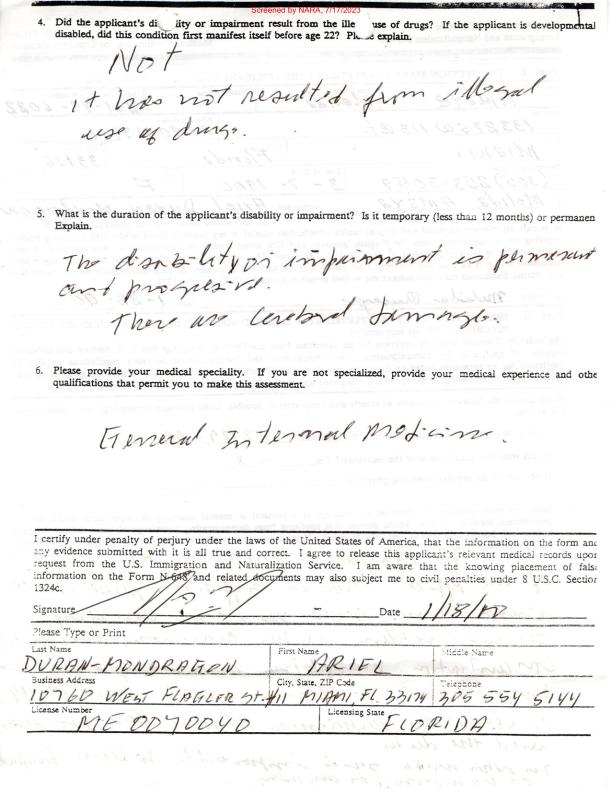 Screened by NARA, 7/17/2023
4. Did the applicant's di ility or impairment result from the ille use of drugs? If the applicant is developmental
disabled, did this condition first manifest itself before age 22? Ple se explain.
Not
it has not resulted from illegal
use of drugs.
5. What is the duration of the applicant's disability or impairment? Is it temporary (less than 12 months) or permanen
Explain.
The disability or impairment is permanent
and progresive.
There are cerebral damage.
6. Please provide your medical speciality. If you are not specialized, provide your medical experience and othe
qualifications that permit you to make this assessment.
General Internal Medicine.
I certify under penalty of perjury under the laws of the United States of America, that the information on the form and
any evidence submitted with it is all true and correct. I agree to release this applicant's relevant medical records upon
request from the U.S. Immigration and Naturalization Service. I am aware that the knowing placement of fals
information on the Form N-648 and related documents may also subject me to civil penalties under 8 U.S.C. Section
1324c.
Signature Date 1/18/00
Please Type or Print
Last Name First Name Middle Name
DURAN-MONDRAGON ARIEL
Business Address City, State, ZIP Code Telephone
10760 WEST FLAGLER ST. #11 MIAMI, FL 33174 305 554 5144
License Number Licensing State
ME 0070040 FLORIDA